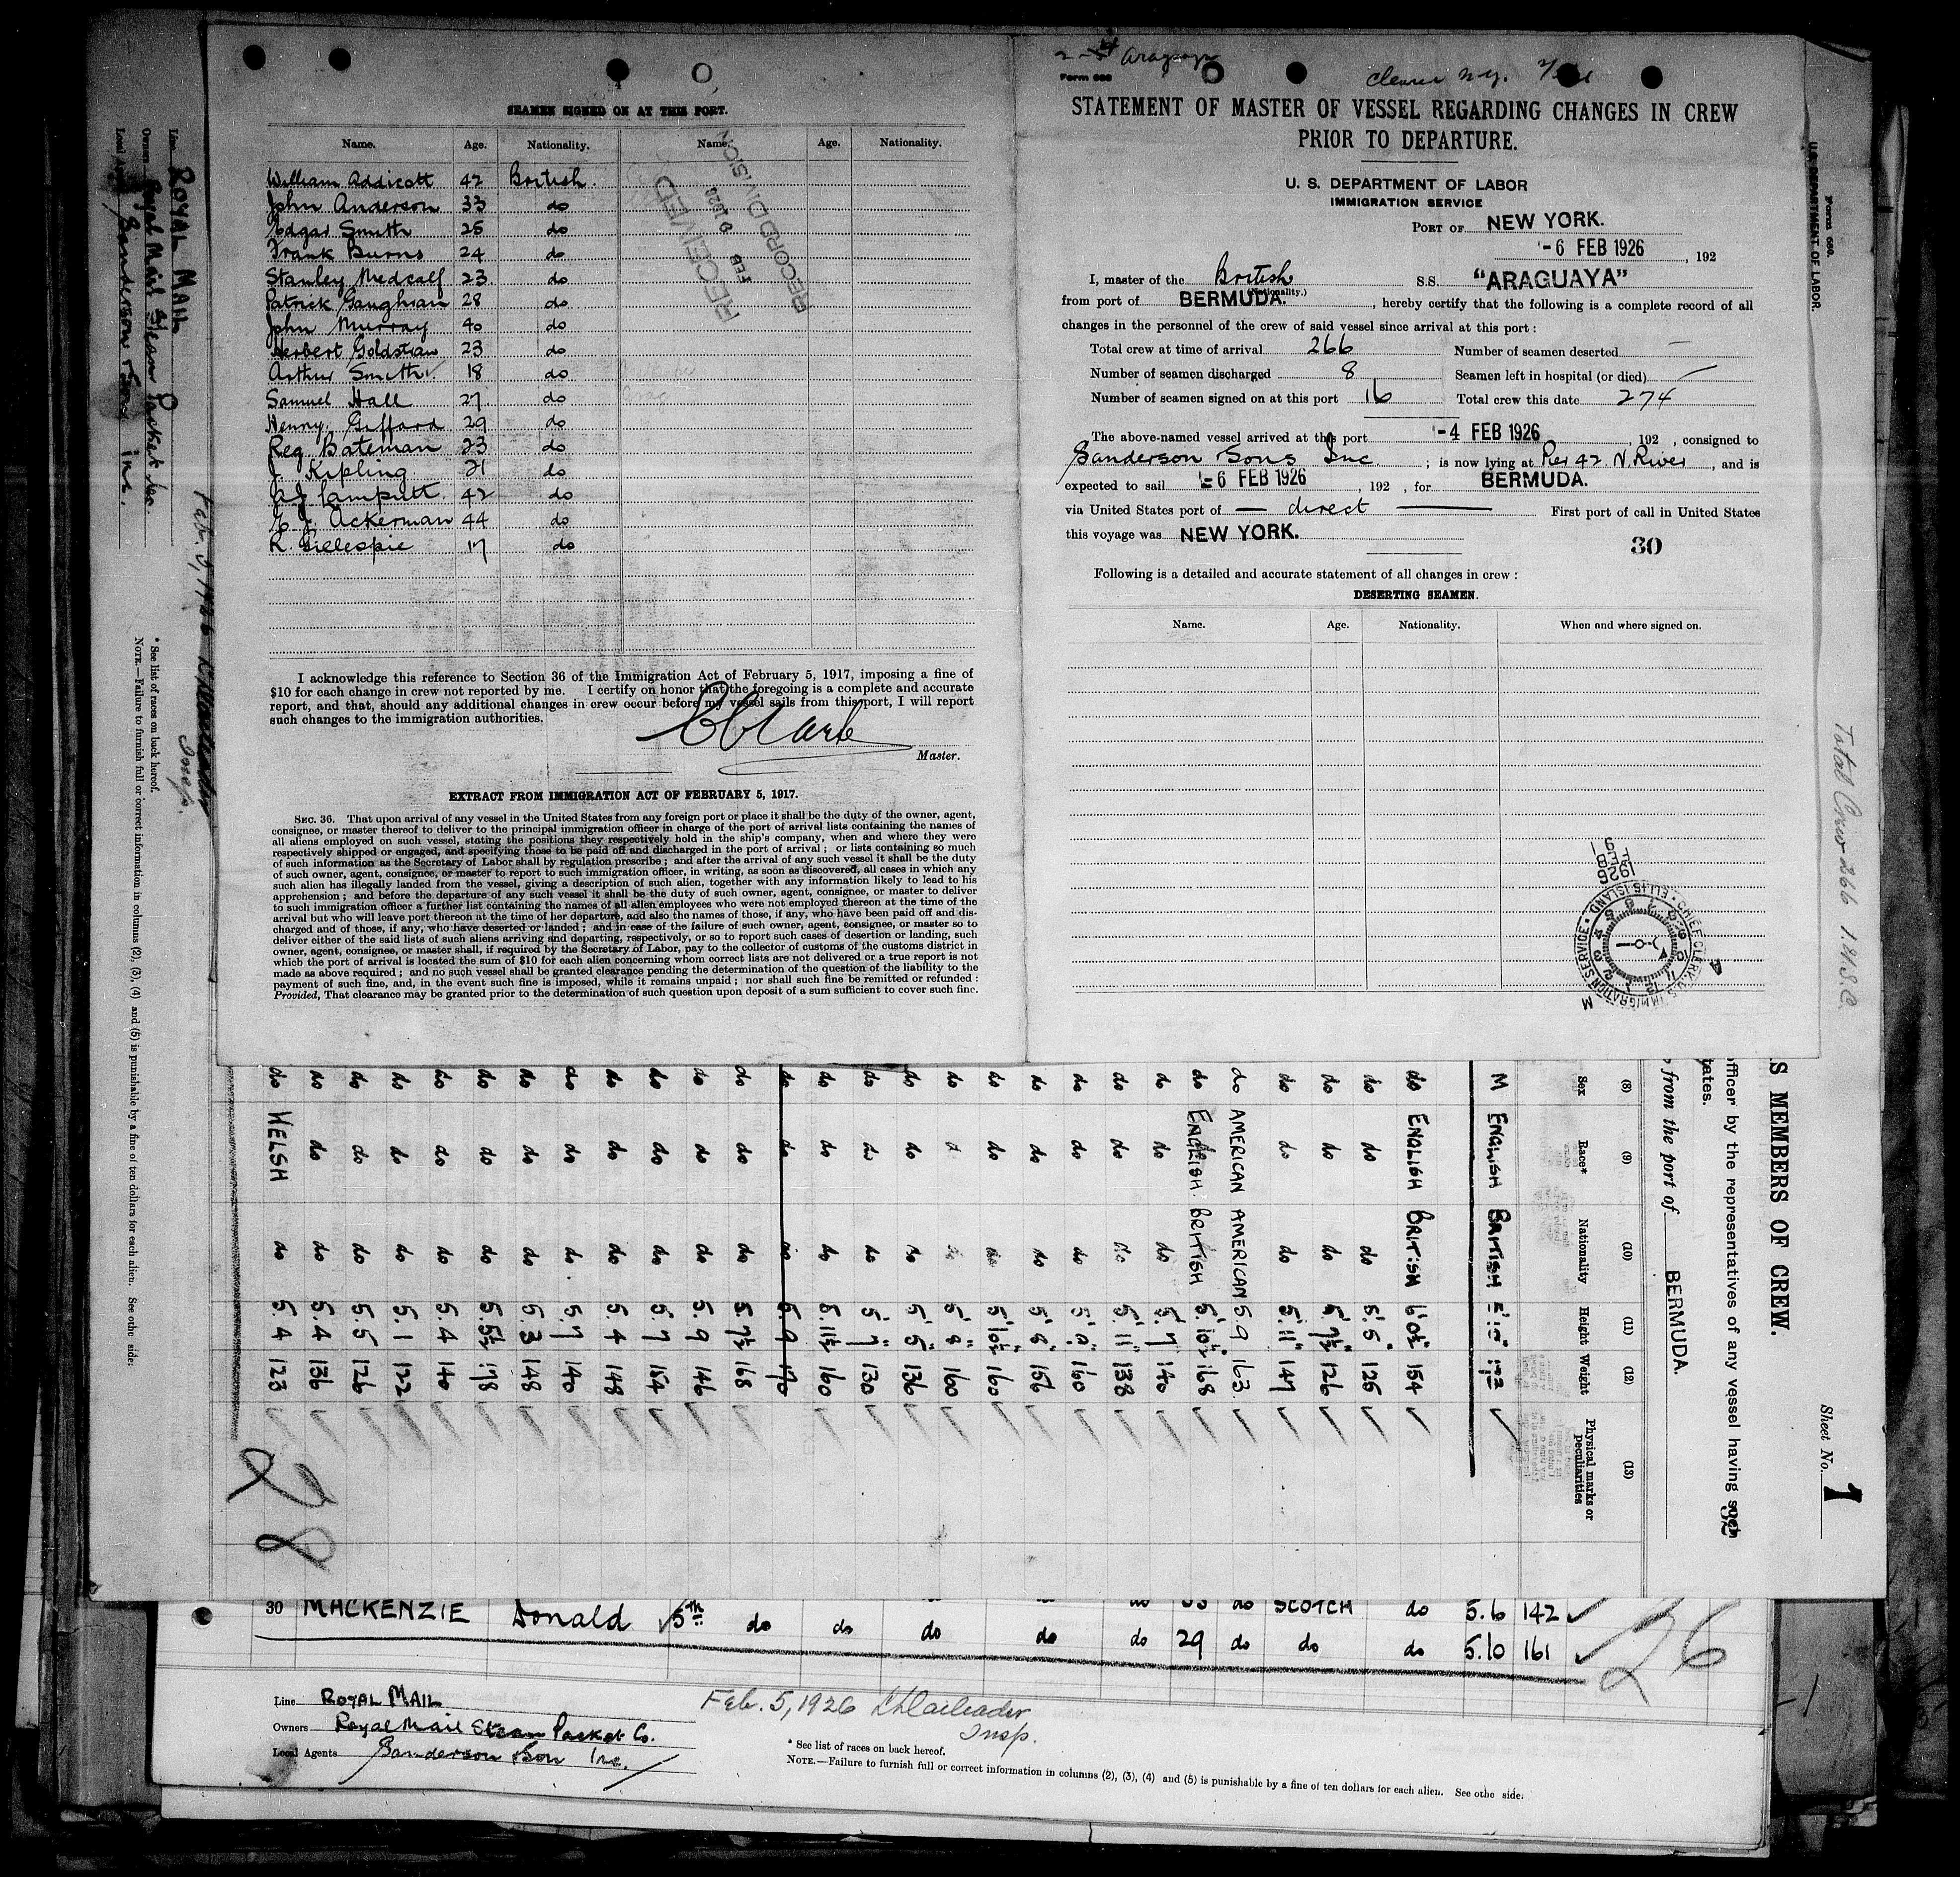 SEAMEN SIGNED ON AT THIS PORT.
Name. Age. Nationality. Name. Age. Nationality.
William Addicott 42 British.
John Anderson 33 do
Edgar Smith 25 do
Frank Burns 24 do
Stanley Medcalf 23 do
Patrick Gaughran 28 do
John Murray 40 do
Herbert 23 do
Arthur Smith 18 do
Samuel Hall 27 do
Henry Giffard 29 do
Reg Bateman 23 do
J. Kipling 21 do
42 do
Ackerman 44 do
R. Gillespie 17 do
RECEIVED
FEB 1926
RECORD DIVISION
I acknowledge this reference to Section 36 of the Immigration Act of February 5, 1917, imposing a fine of
$10 for each change in crew not reported by me. I certify on honor that the foregoing is a complete and accurate
report, and that, should any additional changes in crew occur before my vessel sails from this port, I will report
such changes to the immigration authorities.
Master.
EXTRACT FROM IMMIGRATION ACT OF FEBRUARY 5, 1917.
SEC. 36. That upon arrival of any vessel in the United States from any foreign port or place it shall be the duty of the owner, agent,
consignee, or master thereof to deliver to the principal immigration officer in charge of the port of arrival lists containing the names of
all aliens employed on such vessel, stating the positions they respectively hold in the ship's company, when and where they were
respectively shipped or engaged, and specifying those to be paid off and discharged in the port of arrival; or lists containing so much
of such information as the Secretary of Labor shall by regulation prescribe; and after the arrival of any such vessel it shall be the duty
of such owner, agent, consignee, or master to report to such immigration officer, in writing, as soon as discovered, all cases in which any
such alien has illegally landed from the vessel, giving a description of such alien, together with any information likely to lead to his
apprehension; and before the departure of any such vessel it shall be the duty of such owner, agent, consignee, or master to deliver
to such immigration officer a further list containing the names of all alien employees who were not employed thereon at the time of the
arrival but who will leave port thereon at the time of her departure, and also the names of those, if any, who have been paid off and dis-
charged and of those, if any, who have deserted or landed; and in case of the failure of such owner, agent, consignee, or master so to
deliver either of the said lists of such aliens arriving and departing, respectively, or so to report such cases of desertion or landing, such
owner, agent, consignee, or master shall, if required by the Secretary of Labor, pay to the collector of customs of the customs district in
which the port of arrival is located the sum of $10 for each alien concerning whom correct lists are not delivered or a true report is not
made as above required; and no such vessel shall be granted clearance pending the determination of the question of the liability to the
payment of such fine, and, in the event such fine is imposed, while it remains unpaid; nor shall such fine be remitted or refunded:
Provided, That clearance may be granted prior to the determination of such question upon deposit of a sum sufficient to cover such fine.
Araguaya
Form 689
STATEMENT OF MASTER OF VESSEL REGARDING CHANGES IN CREW
PRIOR TO DEPARTURE.
U. S. DEPARTMENT OF LABOR
IMMIGRATION SERVICE
PORT OF NEW YORK.
-6 FEB 1926, 192
I, master of the British S.S. "ARAGUAYA"
(Nationality.)
from port of BERMUDA., hereby certify that the following is a complete record of all
changes in the personnel of the crew of said vessel since arrival at this port:
Total crew at time of arrival 266 Number of seamen deserted —
Number of seamen discharged 8 Seamen left in hospital (or died)
Number of seamen signed on at this port 16 Total crew this date 274
The above-named vessel arrived at this port -4 FEB 1926, 192 , consigned to
Sanderson Sons Inc.; is now lying at Pier 42. N. River, and is
expected to sail -6 FEB 1926, 192 , for BERMUDA.
via United States port of — direct — First port of call in United States
this voyage was NEW YORK.
30
Following is a detailed and accurate statement of all changes in crew:
DESERTING SEAMEN.
Name. Age. Nationality. When and where signed on.
1926 FEB
CHIEF CLERK U.S. IMMIGRATION SERVICE. ELLIS ISLAND.
Form 680.
U.S. DEPARTMENT OF LABOR.
Total Crew 266
Line ROYAL MAIL
Owners Royal Mail Steam Packet
Local Agents Sanderson & Sons Inc.
* See list of races on back hereof.
NOTE.—Failure to furnish full or correct information in columns (2), (3), (4) and (5) is punishable by a fine of ten dollars for each alien. See othe side.
S MEMBERS OF CREW.
Sheet No. 1
officer by the representatives of any vessel having such
tates.
from the port of BERMUDA.
(8) (9) (10) (11) (12) (13)
Sex Race* Nationality Height Weight Physical marks or peculiarities
M ENGLISH BRITISH
do ENGLISH BRITISH 6'0½" 154
do do do 5'.5" 125
do do do 5'.7½" 126
do do do 5'.11" 147
do AMERICAN AMERICAN 5.9 163
do ENGLISH. BRITISH 5'.10½" 168
do do do 5'.7" 140
do do do 5'.11" 138
do do do 5'.9" 160
do do do 5'.8" 156
do do do 5'10½" 160
do do do 5'.8" 160
do do do 5'.5" 136
do do do 5'.7" 130
do do do 5.11½ 160
do do do 5.9 170
do do do 5.7½ 168
do do do 5.9 146
do do do 5.7 154
do do do 5.4 148
do do do 5.7 140
do do do 5.3 148
do do do 5.5½ 178
do do do 5.4 140
do do do 5.1 122
do do do 5.5 126
do do do 5.4 136
do WELSH do 5.4 123
28
do SCOTCH do 5.6 142
30 MACKENZIE Donald 5th do do do do do 29 do do do 5.10 161
26
Line ROYAL MAIL
Owners Royal Mail Steam Packet Co.
Local Agents Sanderson & Son Inc.
Feb. 5, 1926
Insp.
* See list of races on back hereof.
NOTE.—Failure to furnish full or correct information in columns (2), (3), (4) and (5) is punishable by a fine of ten dollars for each alien. See othe side.